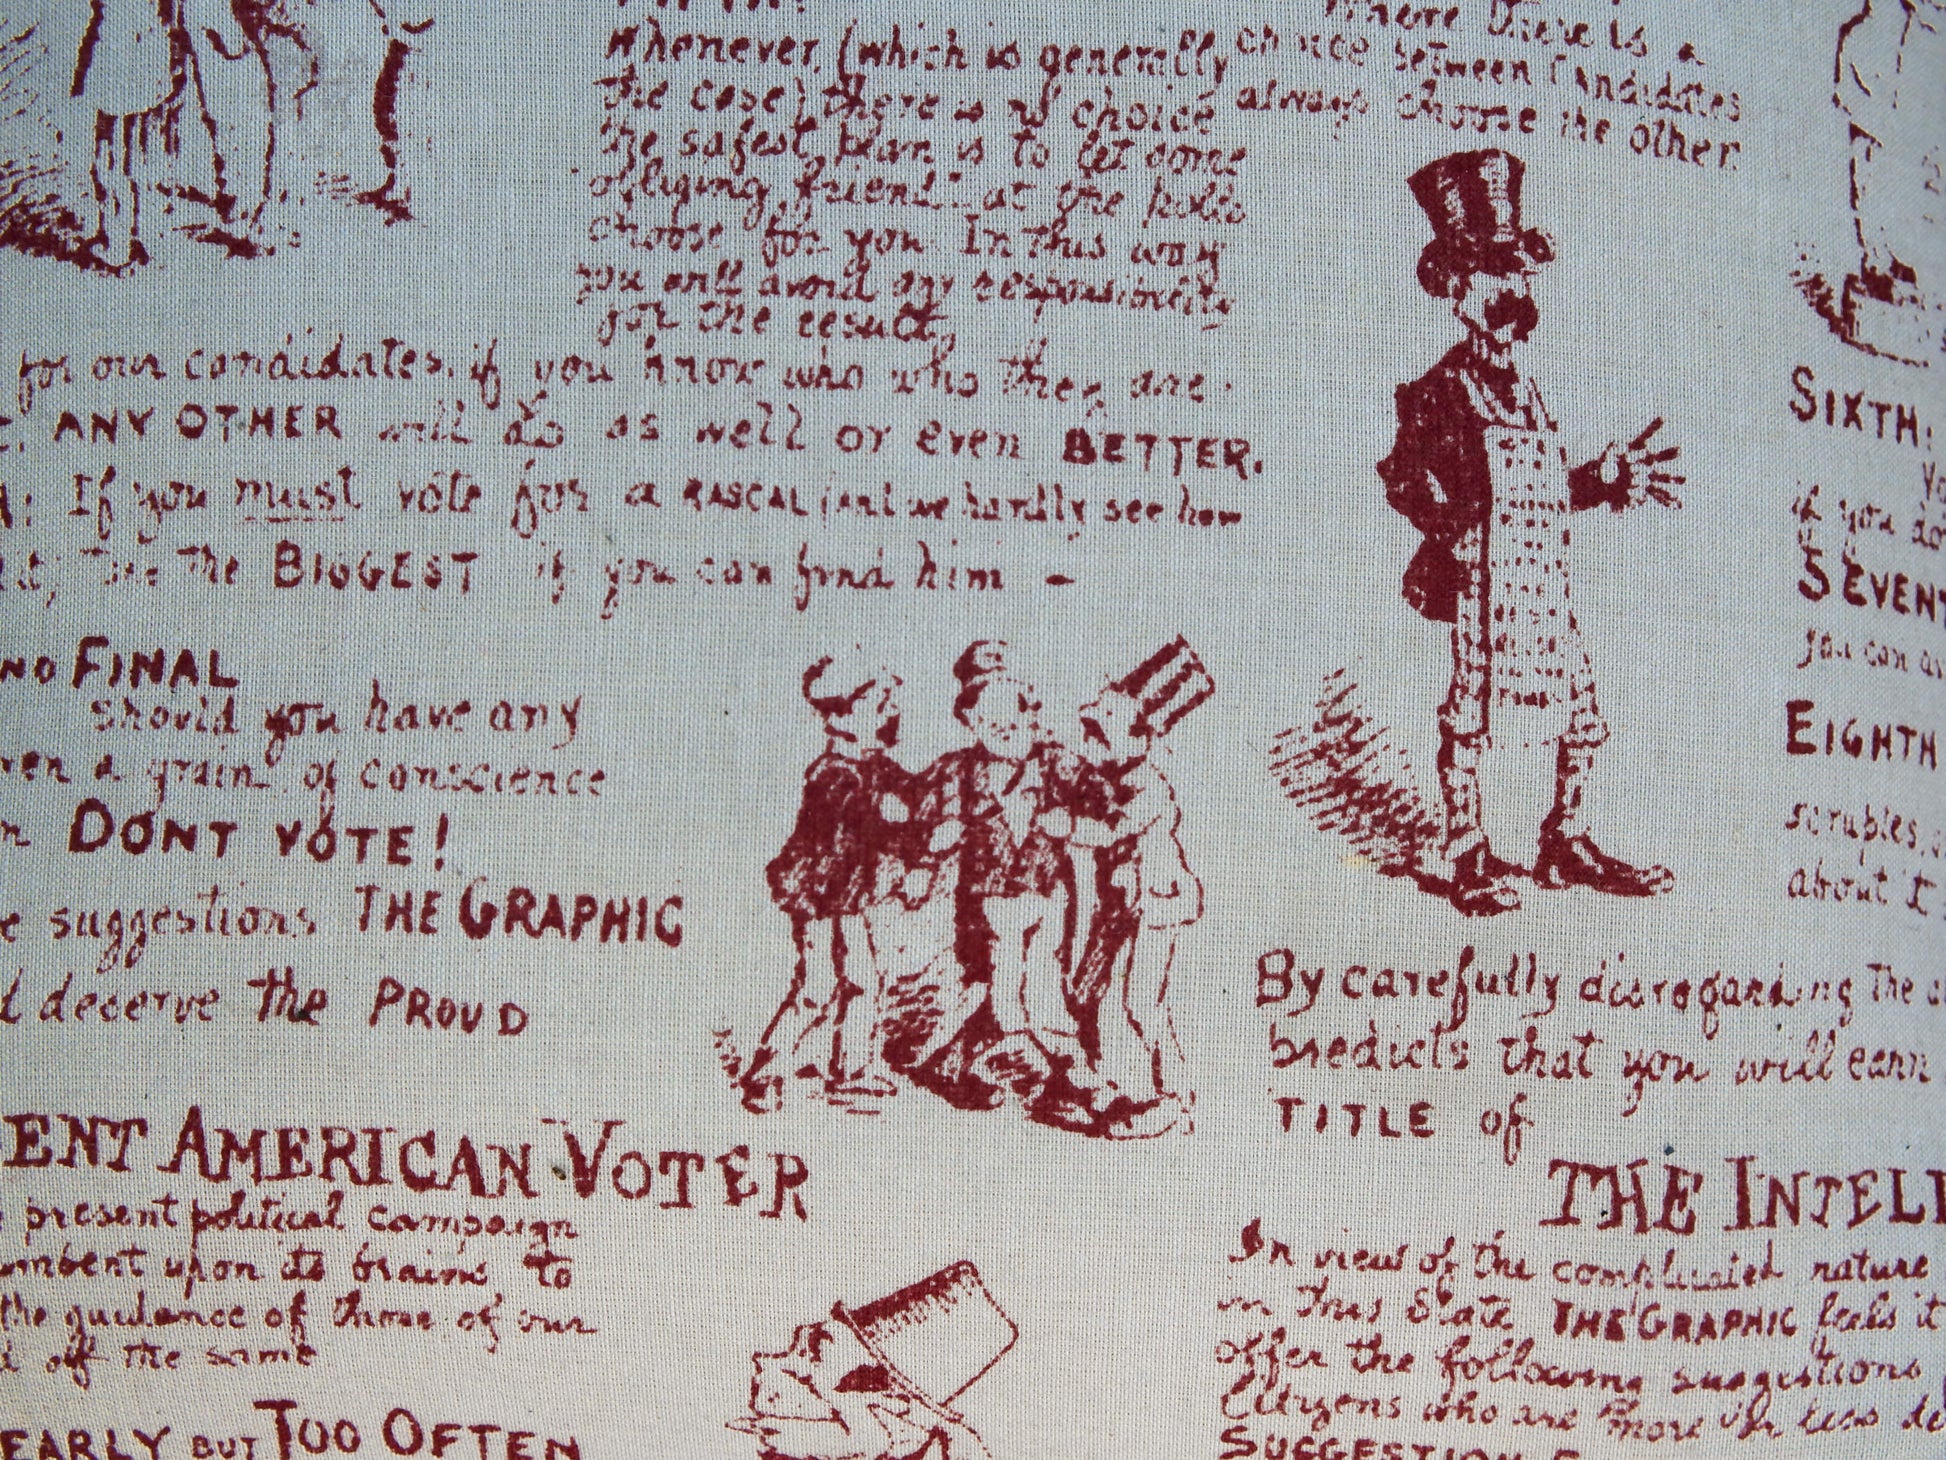 Where there is a
Whenever, (which is generally
the case) there is no choice
the safest plan is to let some
obliging friend at the polls
choose for you In this way
you will avoid any responsibility
for the result,
choice between Candidates
always choose the other.
for our candidates, if you know who who they are.
ANY OTHER will do as well or even BETTER.
If you must vote for a RASCAL (and we hardly see how
the BIGGEST if you can find him -
NO FINAL
should you have any
a grain of conscience
DONT VOTE!
suggestions THE GRAPHIC
deserve the PROUD
SIXTH:
if you do
SEVENT
you can
EIGHTH
scruples,
about it
By carefully disregarding the
predicts that you will earn
TITLE of
ENT AMERICAN VOTER
present political campaign
umbent upon its brains to
the guidance of those of our
off the same
EARLY BUT TOO OFTEN
THE INTELL
In view of the complicated nature
in this State THE GRAPHIC feels it
offer the following suggestions
Citizens who are "more or less
SUGGESTION